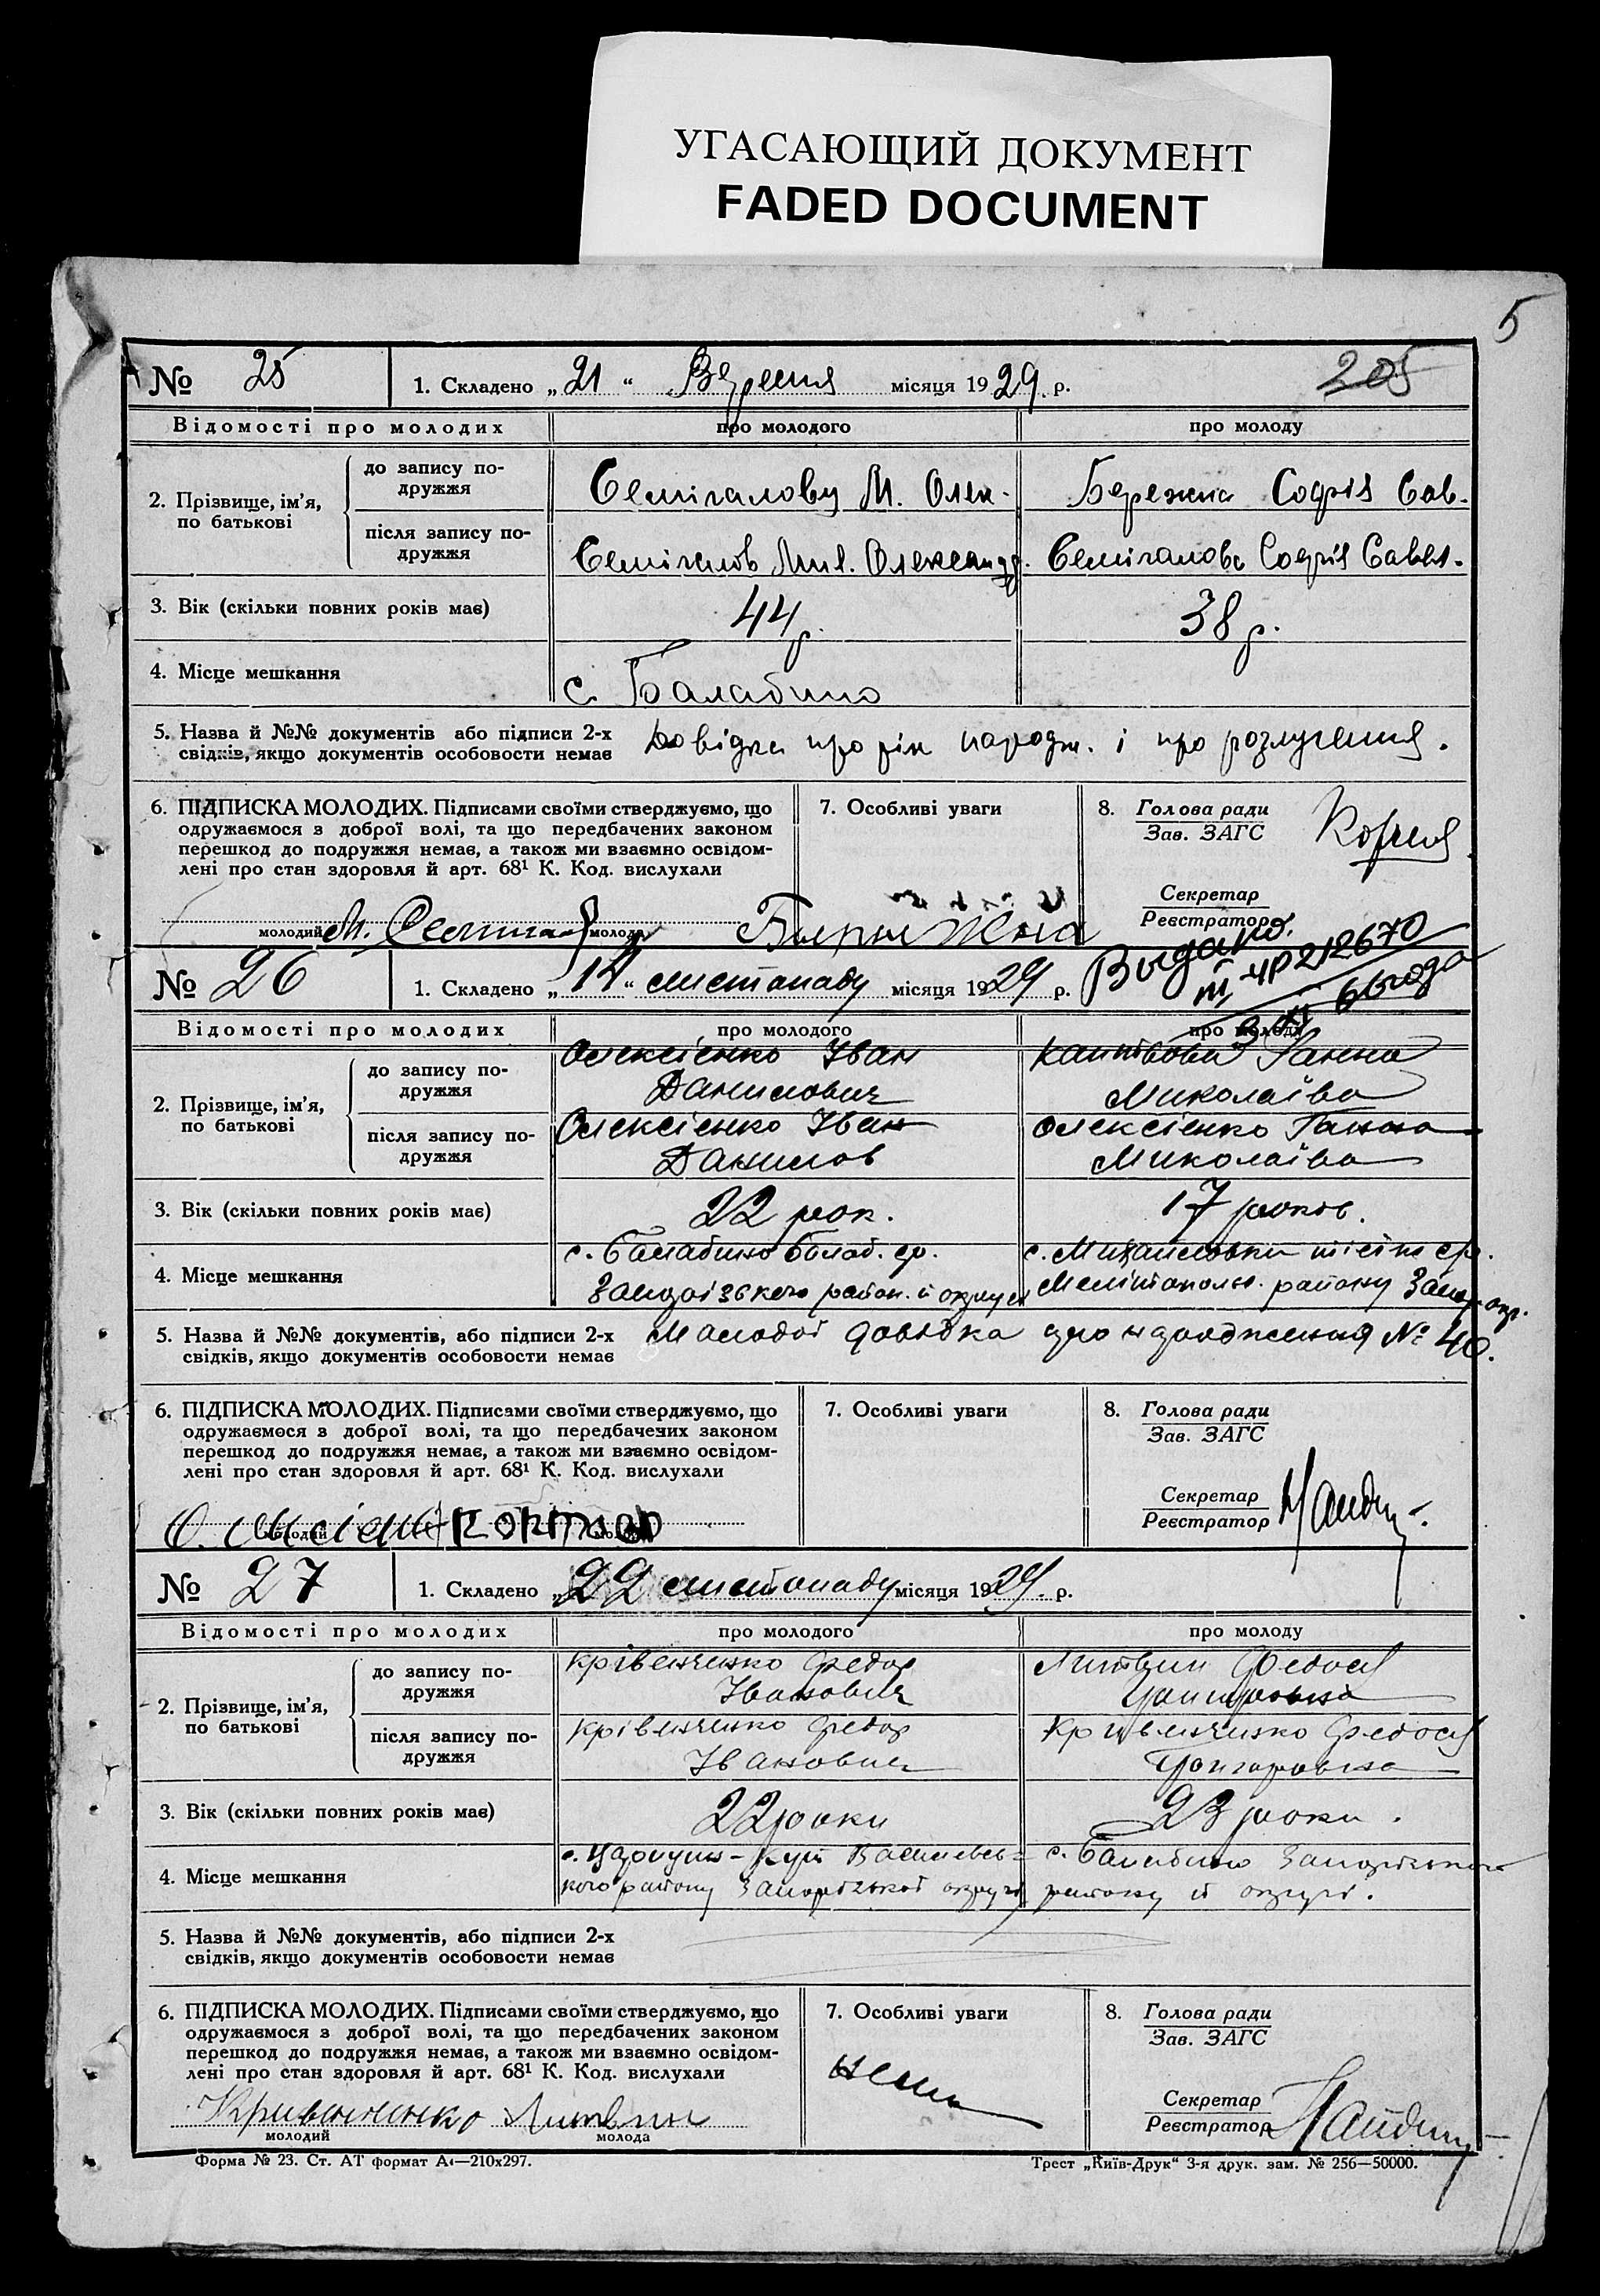 УГАСАЮЩИЙ ДОКУМЕНТ
FADED DOCUMENT
5
№ 25 1. Складено „21“ Вересня місяця 1929 р. 205
Відомості про молодих про молодого про молоду
2. Прізвище, ім'я, по батькові
до запису подружжя Семігалову М. Олек. Бережна Софія Сав.
після запису подружжя Семігалов Мих. Олександр. Семігалова Софія Савел.
3. Вік (скільки повних років має) 44 р. 38 р.
4. Місце мешкання с. Балабино
5. Назва й №№ документів або підписи 2-х
свідків, якщо документів особовости немає Довідка про рік народж. і про розлучення.
6. ПІДПИСКА МОЛОДИХ. Підписами своїми стверджуємо, що
одружаємося з доброї волі, та що передбачених законом
перешкод до подружжя немає, а також ми взаємно освідом-
лені про стан здоровля й арт. 68¹ К. Код. вислухали
7. Особливі уваги
8. Голова ради
Зав. ЗАГС
Секретар
Реєстратор
молодий молода
№ 26 1. Складено „14“ листопаду місяця 1929 р.
Выдано.
III ЧР 212670
3 XI 66 года
Відомості про молодих про молодого про молоду
2. Прізвище, ім'я, по батькові
до запису подружжя Олексієнко Іван Данилович Ганна Миколаїва
після запису подружжя Олексієнко Іван Данилов Олексієнко Ганна Миколаїва
3. Вік (скільки повних років має) 22 рок. 17 років.
4. Місце мешкання с. Балабино Балаб. ср. Запорізького район. й округи с. Михайловки ср. Мелітопольс. району Запор. окр.
5. Назва й №№ документів, або підписи 2-х
свідків, якщо документів особовости немає Молодої довідка про народження № 40.
6. ПІДПИСКА МОЛОДИХ. Підписами своїми стверджуємо, що
одружаємося з доброї волі, та що передбачених законом
перешкод до подружжя немає, а також ми взаємно освідом-
лені про стан здоровля й арт. 68¹ К. Код. вислухали
7. Особливі уваги
8. Голова ради
Зав. ЗАГС
Секретар
Реєстратор
молодий молода
№ 27 1. Складено „22 листопаду місяця 1929. р.
Відомості про молодих про молодого про молоду
2. Прізвище, ім'я, по батькові
до запису подружжя Крівенченко Федор Іванович Литвин Федося
після запису подружжя Крівенченко Федор Іванович Кривенченко Федося
3. Вік (скільки повних років має) 22 роки 23 роки.
4. Місце мешкання с. Царицин-Кут Василевсь-
кого району Запорізької округи с. Балабино Запорізького району й округи.
5. Назва й №№ документів, або підписи 2-х
свідків, якщо документів особовости немає
6. ПІДПИСКА МОЛОДИХ. Підписами своїми стверджуємо, що
одружаємося з доброї волі, та що передбачених законом
перешкод до подружжя немає, а також ми взаємно освідом-
лені про стан здоровля й арт. 68¹ К. Код. вислухали
7. Особливі уваги
нема
8. Голова ради
Зав. ЗАГС
Секретар
Реєстратор
Кривенченко Литвин
молодий молода
Форма № 23. Ст. АТ формат А₄—210х297. Трест „Київ-Друк“ 3-я друк. зам. № 256—50000.